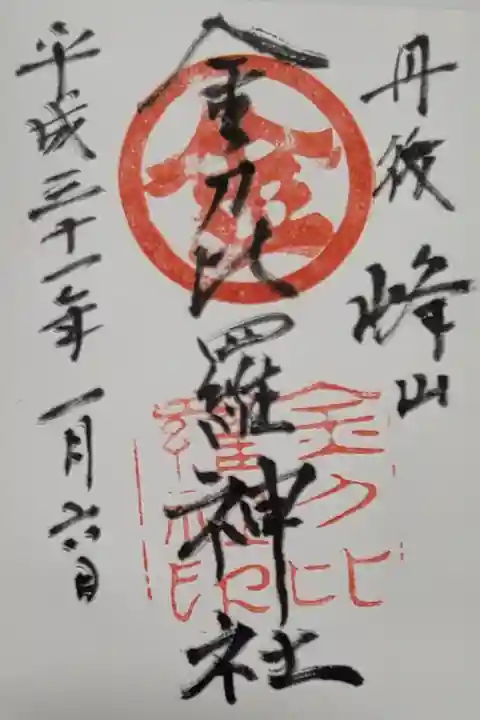 丹後 峰山
金刀比羅神社
平成三十一年 一月六日
金
金刀比
羅社印